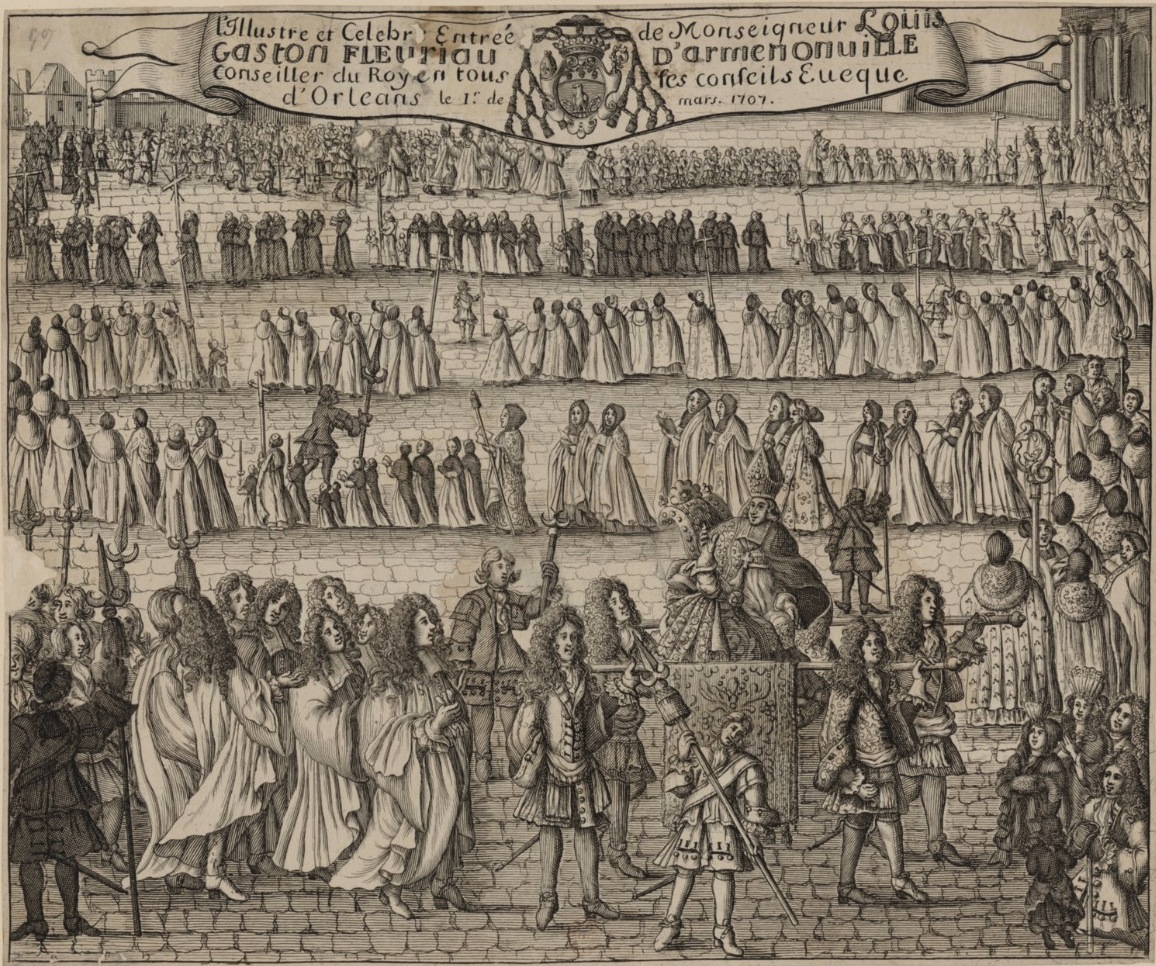 99
l'Illustre et Celebr Entreé de Monseigneur Loüis
Gaston FLEURIAU D'armenonuiLLE
Conseiller du Roy en tous ses conseils Eueque
d'Orleans le 1.r de mars. 1707.